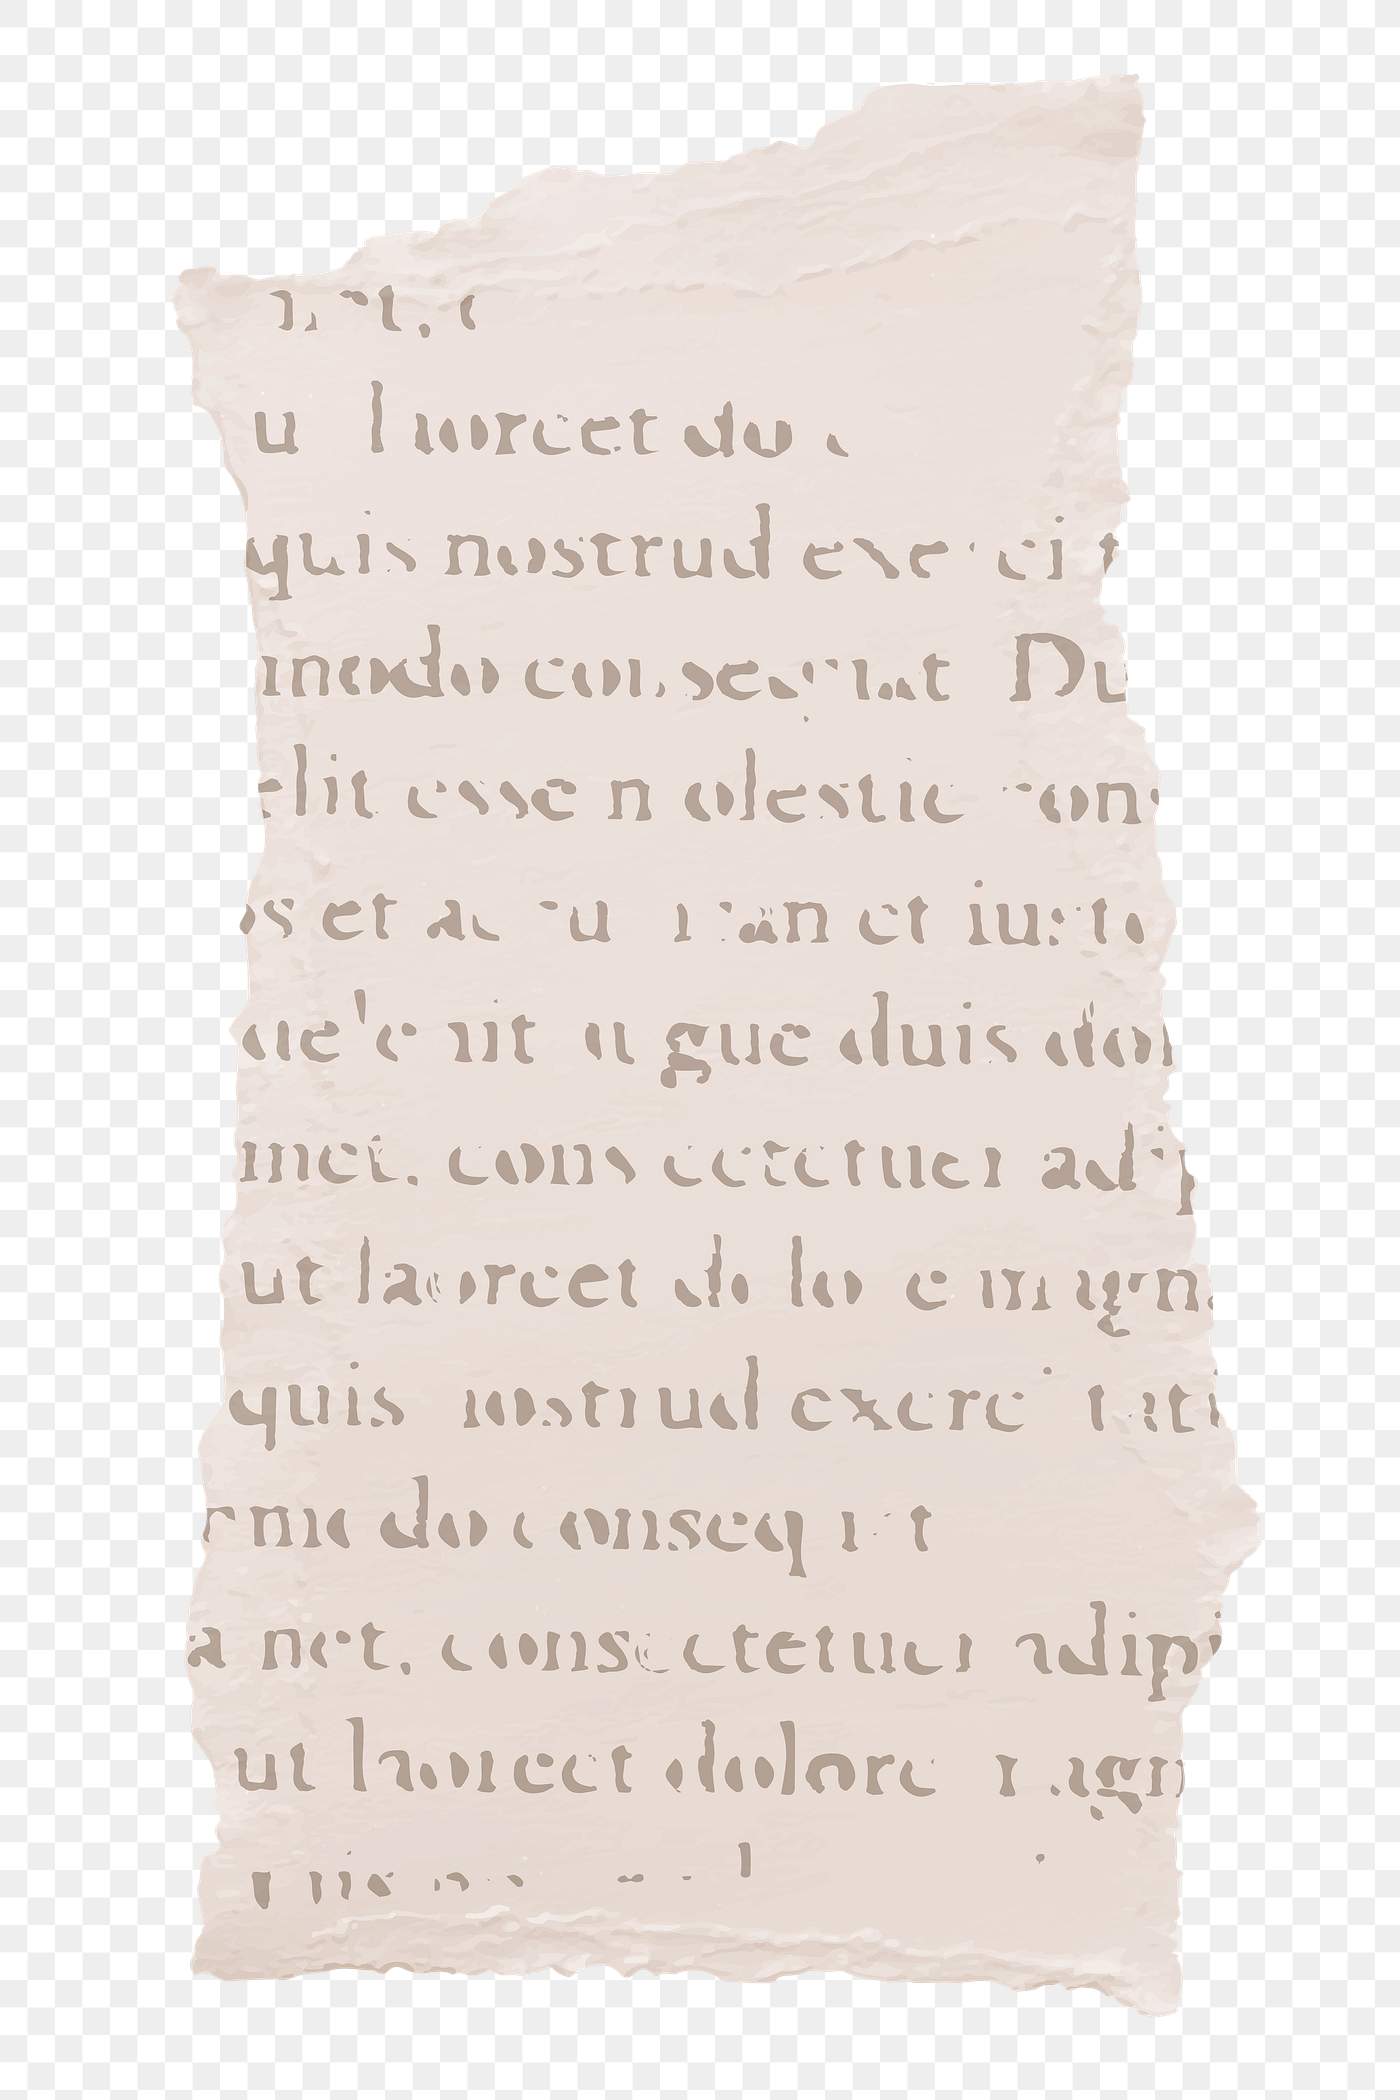 ut laoreet do
quis nostrud exerci t
modo consequat Du
elit esse molestie cons
os et accumsan et iusto
que'e nit augue duis dol
met, cons ectetuer adip
ut laoreet dolore magna
quis nostrud exerci tati
mmodo consequat
a met, cons ectetuer adipi
ut laoreet dolore magn
quis nos